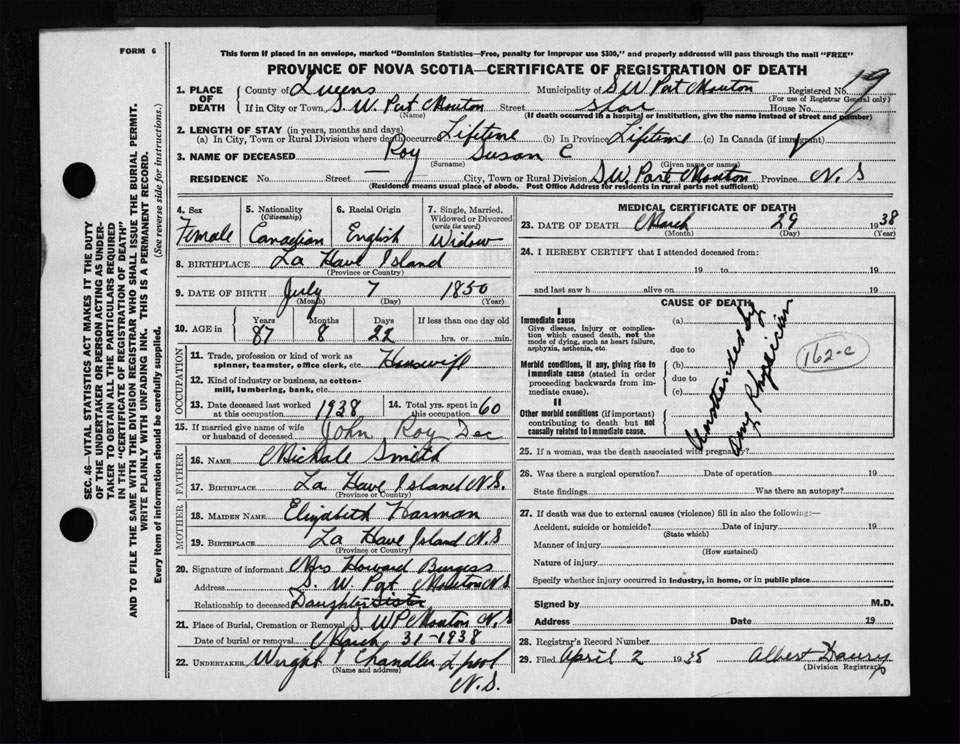 FORM 6
This form if placed in an envelope, marked "Dominion Statistics—Free, penalty for improper use $300," and properly addressed will pass through the mail "FREE"
PROVINCE OF NOVA SCOTIA—CERTIFICATE OF REGISTRATION OF DEATH
1. PLACE OF DEATH
County of Queens Municipality of S W Port Mouton Registered No. 19
(For use of Registrar General only)
If in City or Town S. W. Port Mouton Street House No.
(Name) (If death occurred in a hospital or institution, give the name instead of street and number)
2. LENGTH OF STAY (in years, months and days)
(a) In City, Town or Rural Division where death occurred Lifetime (b) In Province Lifetime (c) In Canada (if immigrant)
3. NAME OF DECEASED Roy Susan C
(Surname) (Given name or names)
RESIDENCE No. Street — City, Town or Rural Division S W Port Mouton Province N. S
(Residence means usual place of abode. Post Office Address for residents in rural parts not sufficient)
4. Sex Female
5. Nationality (Citizenship) Canadian
6. Racial Origin English
7. Single, Married, Widowed or Divorced (write the word) Widow
8. BIRTHPLACE La Have Island
(Province or Country)
9. DATE OF BIRTH July 7 1850
(Month) (Day) (Year)
10. AGE in Years 87 Months 8 Days 22 If less than one day old hrs. or min.
OCCUPATION
11. Trade, profession or kind of work as spinner, teamster, office clerk, etc. Housewife
12. Kind of industry or business, as cotton-mill, lumbering, bank, etc.
13. Date deceased last worked at this occupation 1938
14. Total yrs. spent in this occupation 60
15. If married give name of wife or husband of deceased John Roy Dec
FATHER
16. NAME Michale Smith
17. BIRTHPLACE La Have Island N.S.
(Province or Country)
MOTHER
18. MAIDEN NAME Elizabeth Harman
19. BIRTHPLACE La Have Island N.S
(Province or Country)
20. Signature of informant Mrs Howard Burgess
Address S. W. Port Mouton N.S
Relationship to deceased Daughter Sister
21. Place of Burial, Cremation or Removal S. W P Mouton N. S
Date of burial or removal March 31-1938
22. UNDERTAKER Wright Chandler L'pool
(Name and address)
N.S.
MEDICAL CERTIFICATE OF DEATH
23. DATE OF DEATH March 29 1938
(Month) (Day) (Year)
24. I HEREBY CERTIFY that I attended deceased from:
19 to 19
and last saw h alive on 19
CAUSE OF DEATH
I
Immediate cause
Give disease, injury or complication which caused death, not the mode of dying, such as heart failure, asphyxia, asthenia, etc.
(a)
due to
Morbid conditions, if any, giving rise to immediate cause (stated in order proceeding backwards from immediate cause).
(b)
due to
(c)
II
Other morbid conditions (if important) contributing to death but not causally related to immediate cause.
Unattended by
any Physician
162-c
25. If a woman, was the death associated with pregnancy?
26. Was there a surgical operation? Date of operation 19
State findings Was there an autopsy?
27. If death was due to external causes (violence) fill in also the following:—
Accident, suicide or homicide? Date of injury 19
(State which)
Manner of injury
(How sustained)
Nature of injury
Specify whether injury occurred in Industry, in home, or in public place
Signed by M.D.
Address Date 19
28. Registrar's Record Number
29. Filed April 2 1938 Albert Daury
(Division Registrar)
SEC. 46—VITAL STATISTICS ACT MAKES IT THE DUTY
OF THE UNDERTAKER OR PERSON ACTING AS UNDER-
TAKER TO OBTAIN ALL THE PARTICULARS REQUIRED
IN THE "CERTIFICATE OF REGISTRATION OF DEATH"
AND TO FILE THE SAME WITH THE DIVISION REGISTRAR WHO SHALL ISSUE THE BURIAL PERMIT.
WRITE PLAINLY WITH UNFADING INK. THIS IS A PERMANENT RECORD.
Every item of information should be carefully supplied. (See reverse side for instructions.)